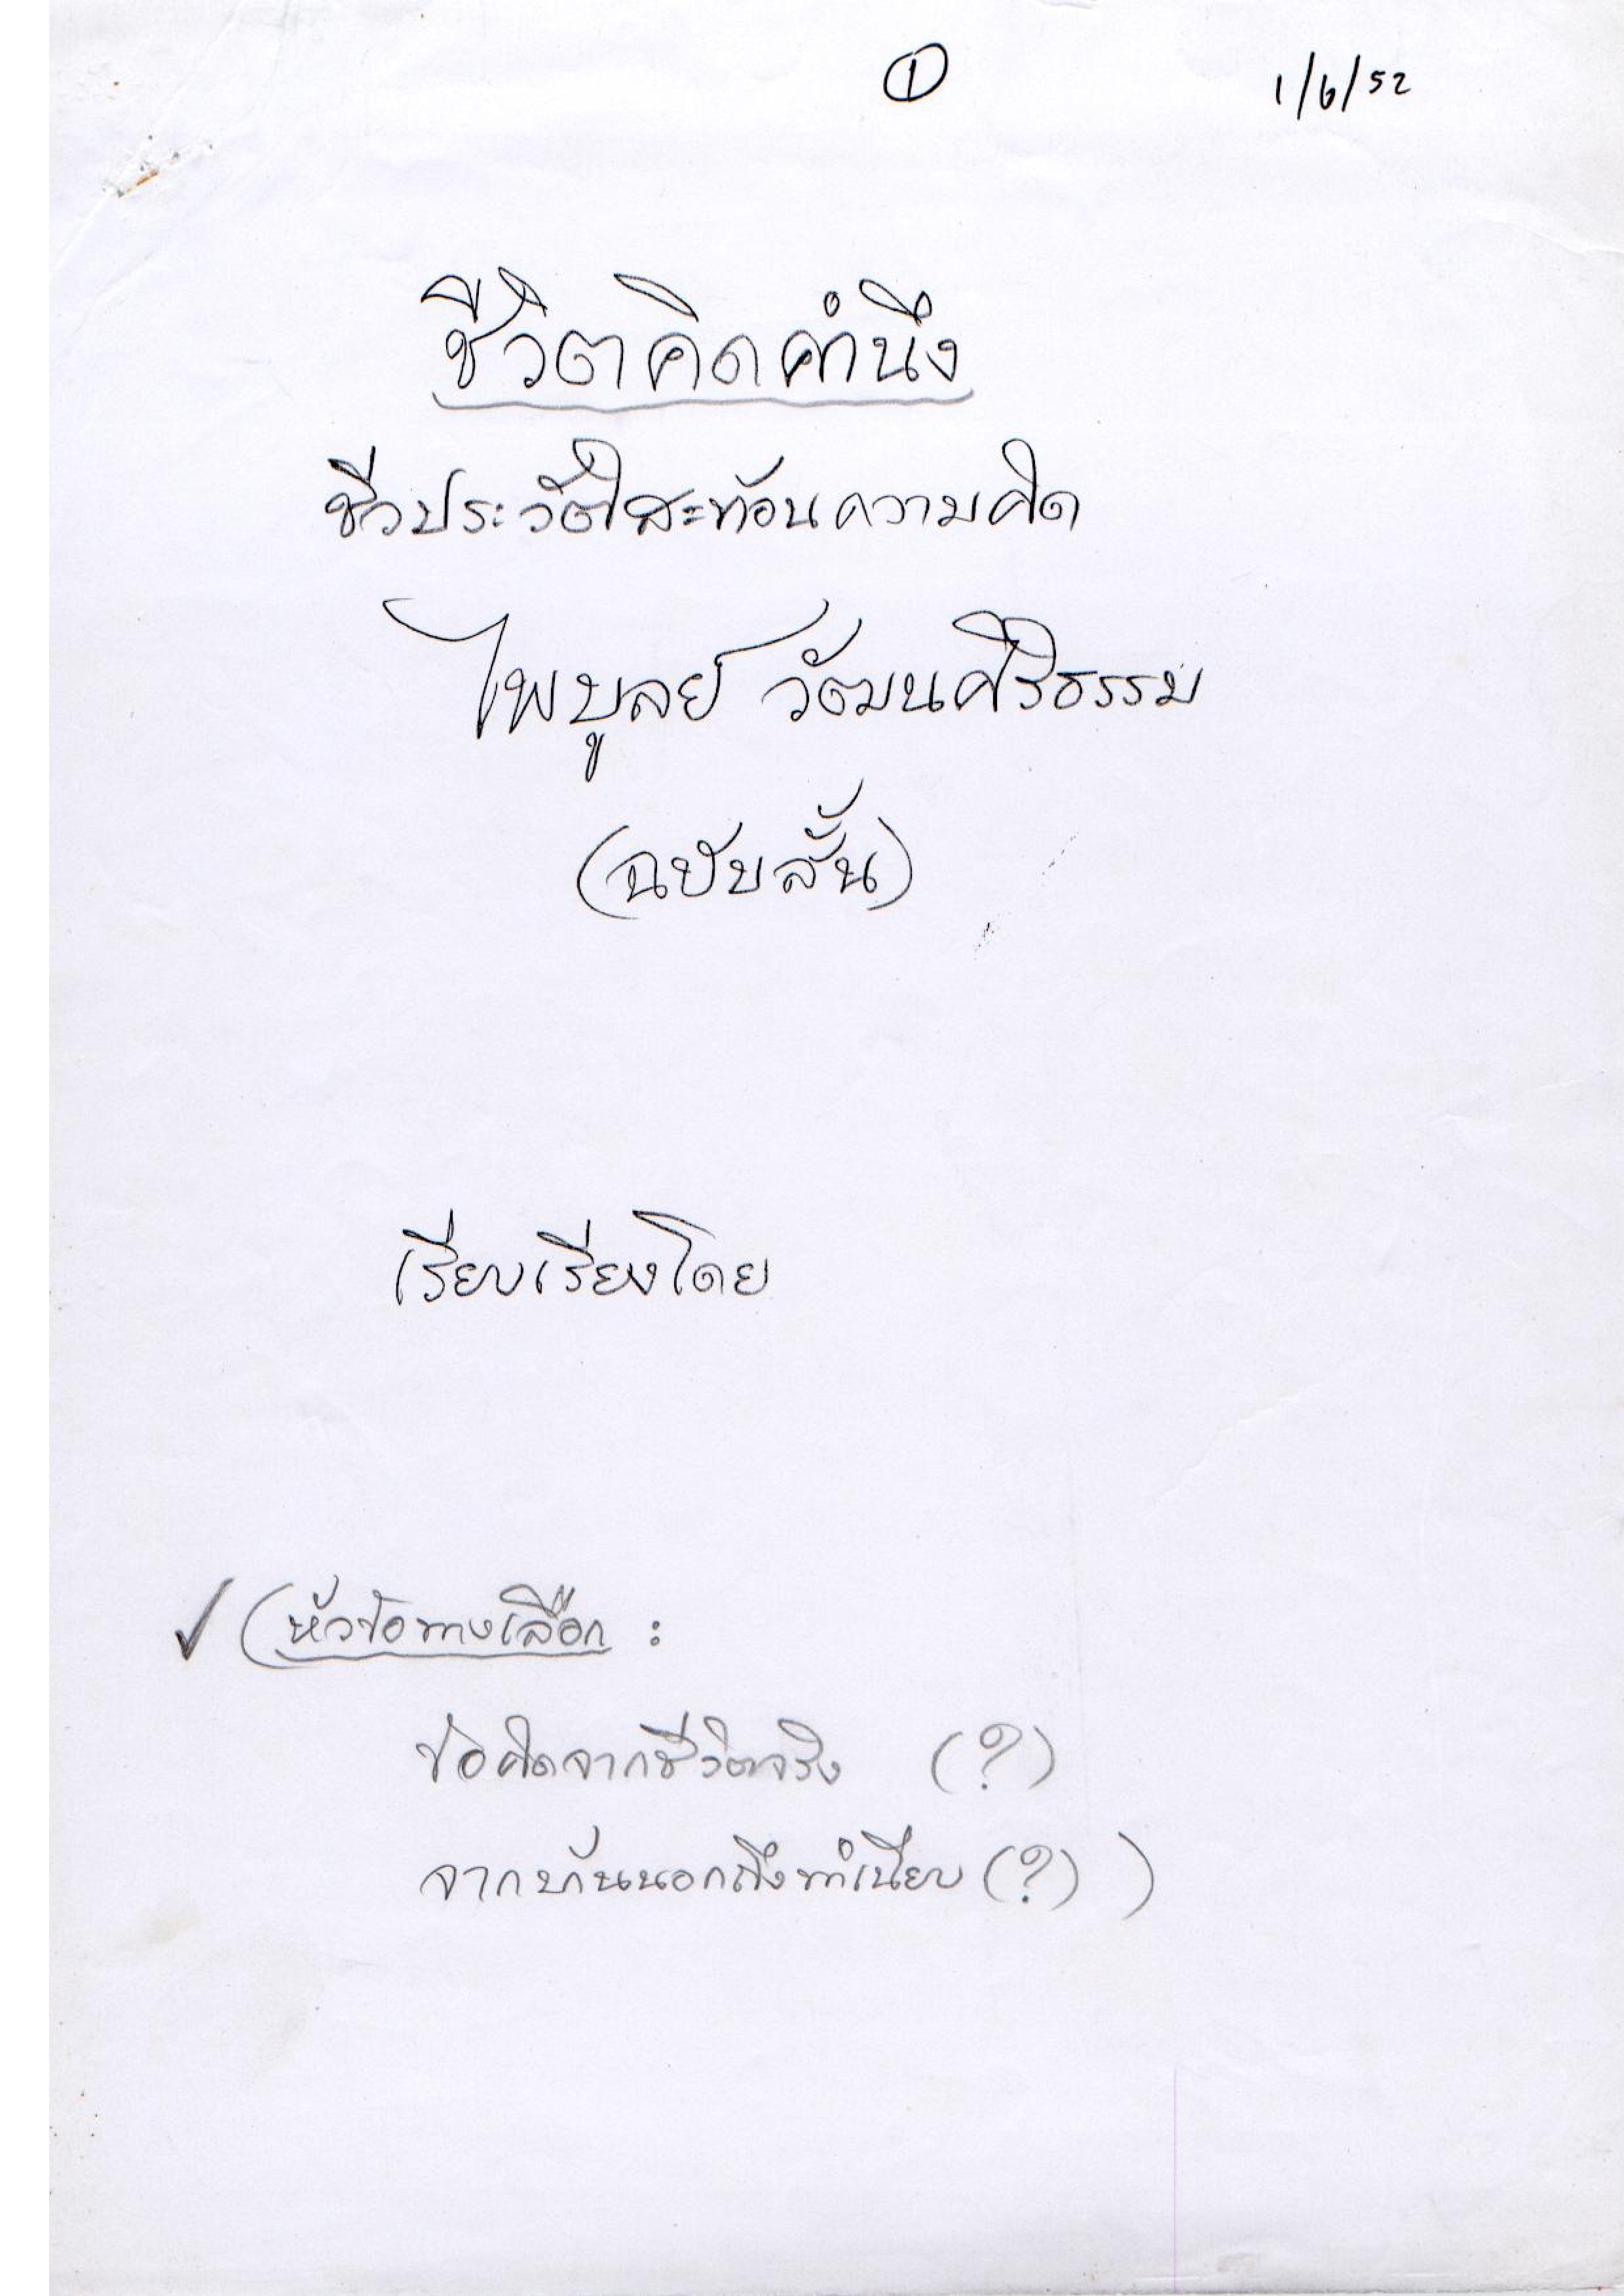 ① 1/6/52
ชีวิตคิดคำนึง
ชีวประวัติสะท้อนความคิด
ไพบูลย์ วัฒนศิริธรรม
(ฉบับสั้น)
เรียบเรียงโดย
✓ (หัวข้อทางเลือก :
ข้อคิดจากชีวิตจริง (?)
จากบ้านนอกถึงทำเนียบ (?) )